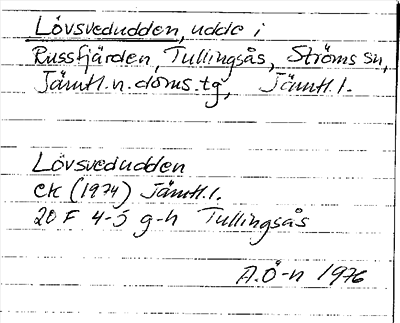 Lövsvedudden, udde i
Russfjärden, Tullingsås, Ströms sn,
Jämtl.n.doms.tg, Jämtl.l.
Lövsvedudden
ek (1974) Jämtl.l.
20 F 4-5 g-h Tullingsås
A.Ö-n 1976